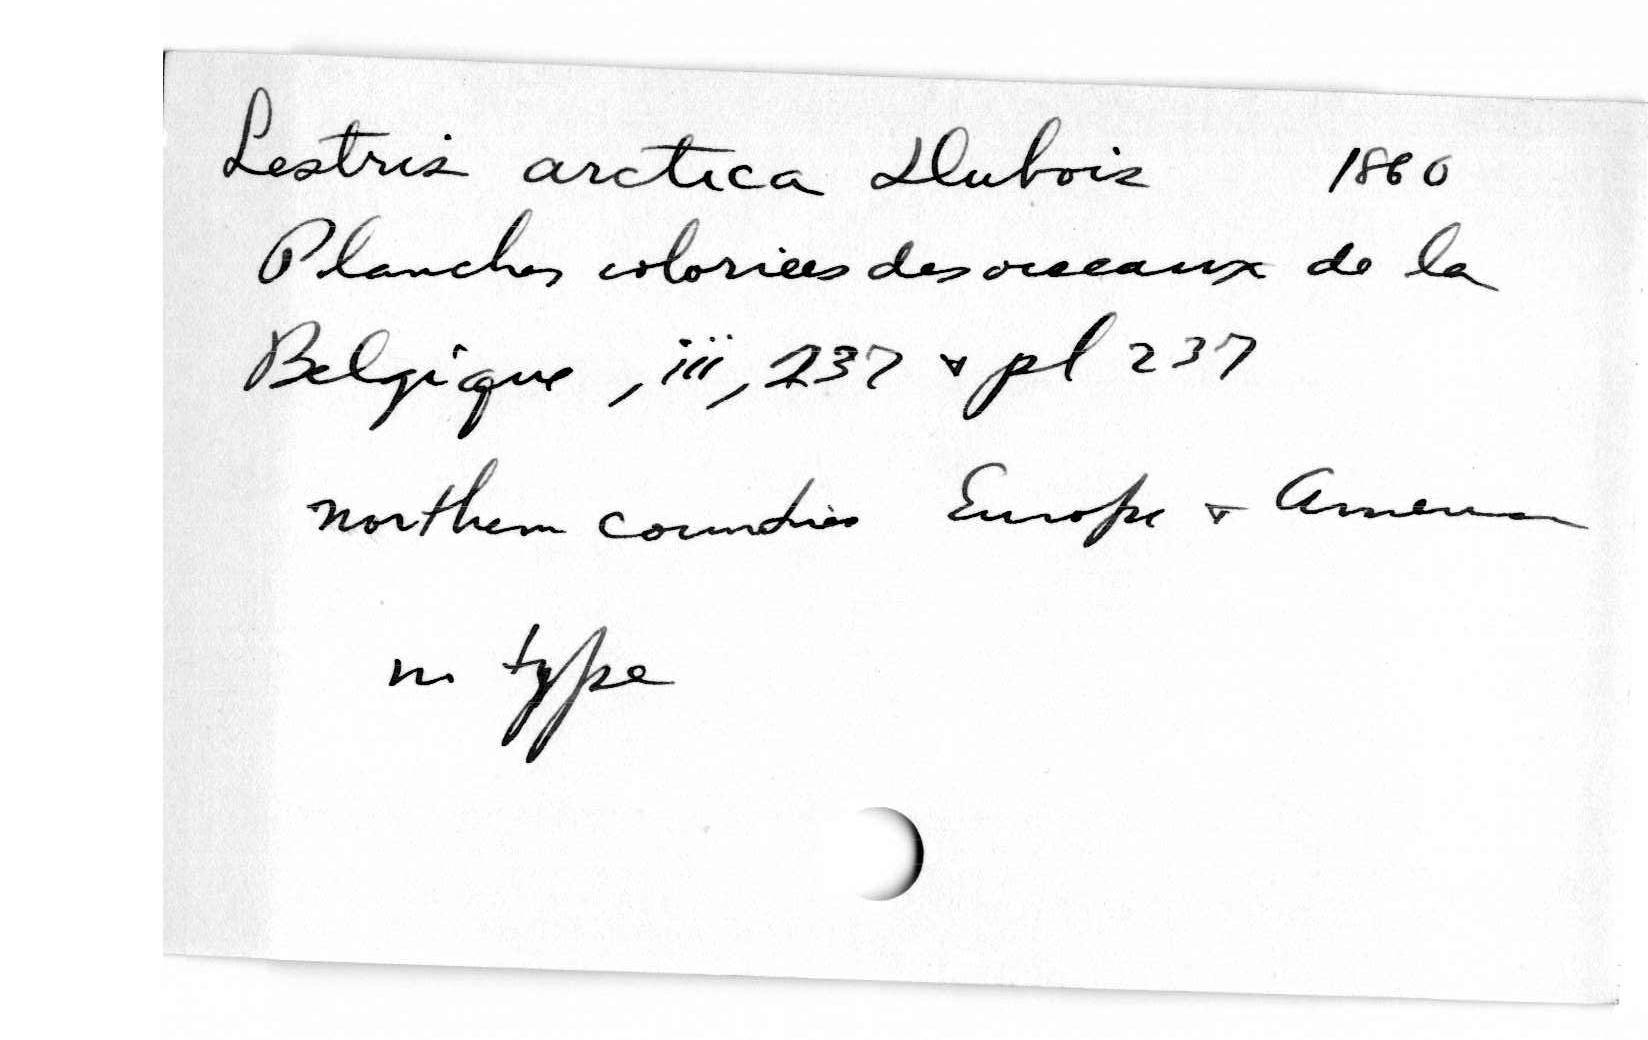 Lestris arctica Dubois 1860
Planches coloriees des oiseaux de la
Belgique, iii, 237 & pl 237
northern countries Europe & America
no type